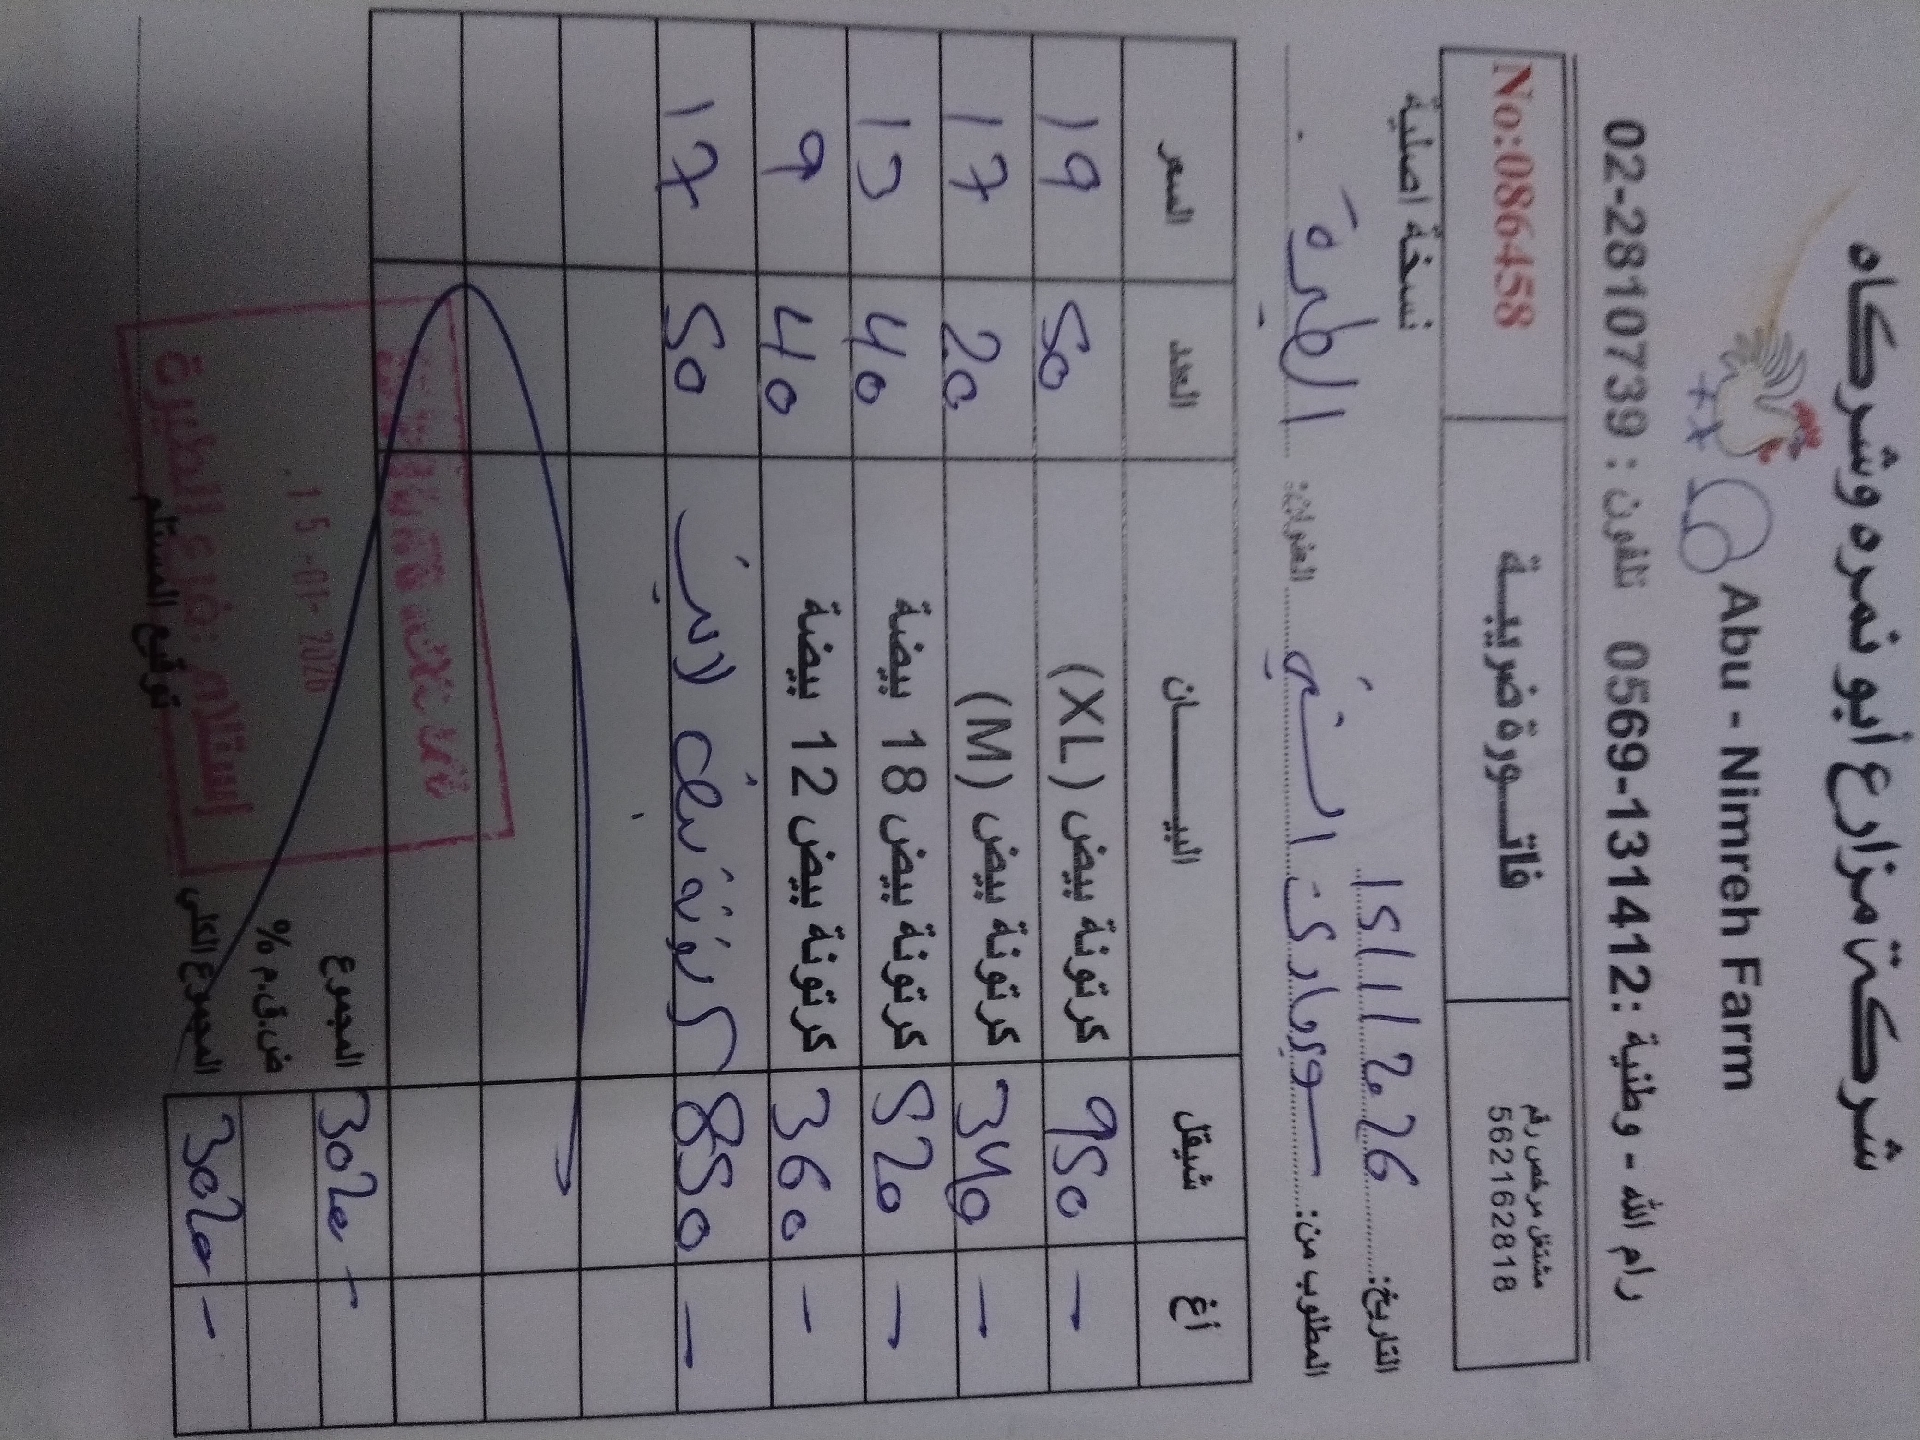 شركة مزارع أبو نمره وشركاه
Abu - Nimreh Farm
رام الله - وطنية: 0569-131412 تلفون : 02-2810739
مشتغل مرخص رقم
562162818
فاتـــورة ضريبيـــة
No:086458
نسخة اصلية
التاريخ: 15/1/2026
المطلوب من: سوبرماركت السني العنوان: الطيرة
أغ شيقل البيـــــــان العدد السعر
- 950 كرتونة بيض (XL) 50 19
- 340 كرتونة بيض (M) 20 17
- 520 كرتونة بيض 18 بيضة 40 13
- 360 كرتونة بيض 12 بيضة 40 9
- 850 كرتونة بيض 50 17
المجموع 3020 -
ض.ق.م %
المجموع الكلي 3020 -
استلام فرع الطيرة
15 -01- 2026
توقيع المستلم